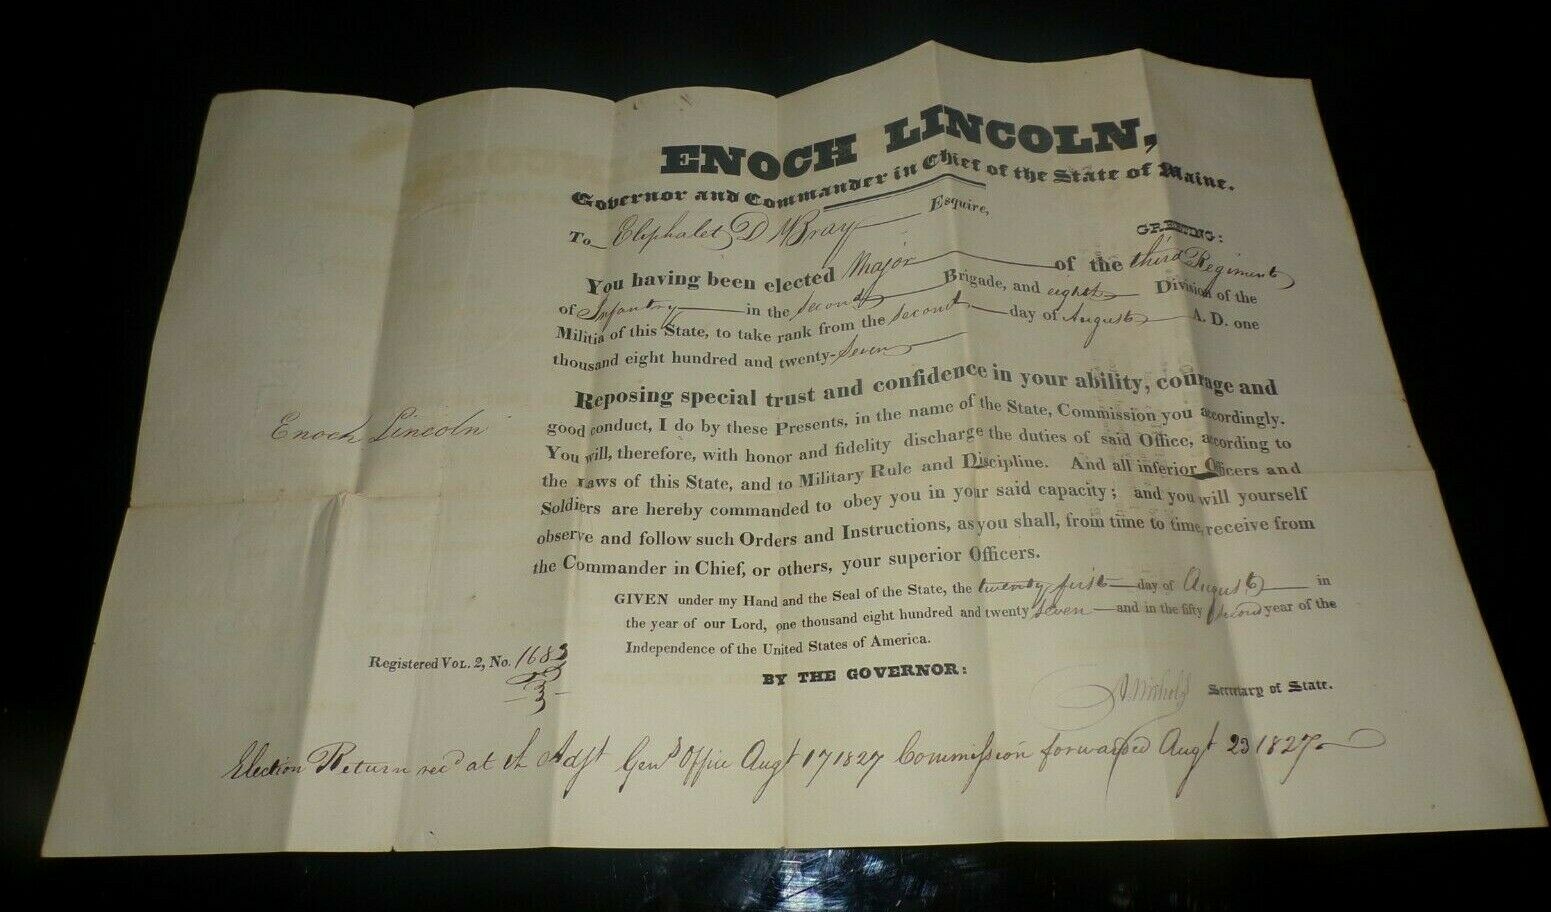 ENOCH LINCOLN,
Governor and Commander in Chief of the State of Maine.
To Eliphalet D M Bray Esquire,
GREETING:
You having been elected Major of the third Regiment
of Infantry in the second Brigade, and eighth Division of the
Militia of this State, to take rank from the second day of August A. D. one
thousand eight hundred and twenty-seven
Reposing special trust and confidence in your ability, courage and
good conduct, I do by these Presents, in the name of the State, Commission you accordingly.
You will, therefore, with honor and fidelity discharge the duties of said Office, according to
the Laws of this State, and to Military Rule and Discipline. And all inferior Officers and
Soldiers are hereby commanded to obey you in your said capacity; and you will yourself
observe and follow such Orders and Instructions, as you shall, from time to time, receive from
the Commander in Chief, or others, your superior Officers.
Enoch Lincoln
GIVEN under my Hand and the Seal of the State, the twenty first day of August in
the year of our Lord, one thousand eight hundred and twenty seven and in the fifty second year of the
Independence of the United States of America.
Registered VOL. 2, No. 1683
BY THE GOVERNOR:
A Nichols Secretary of State.
Election Return recd at th Adjt Genl's Office Augt 17 1827 Commission forwarded Augt 23 1827